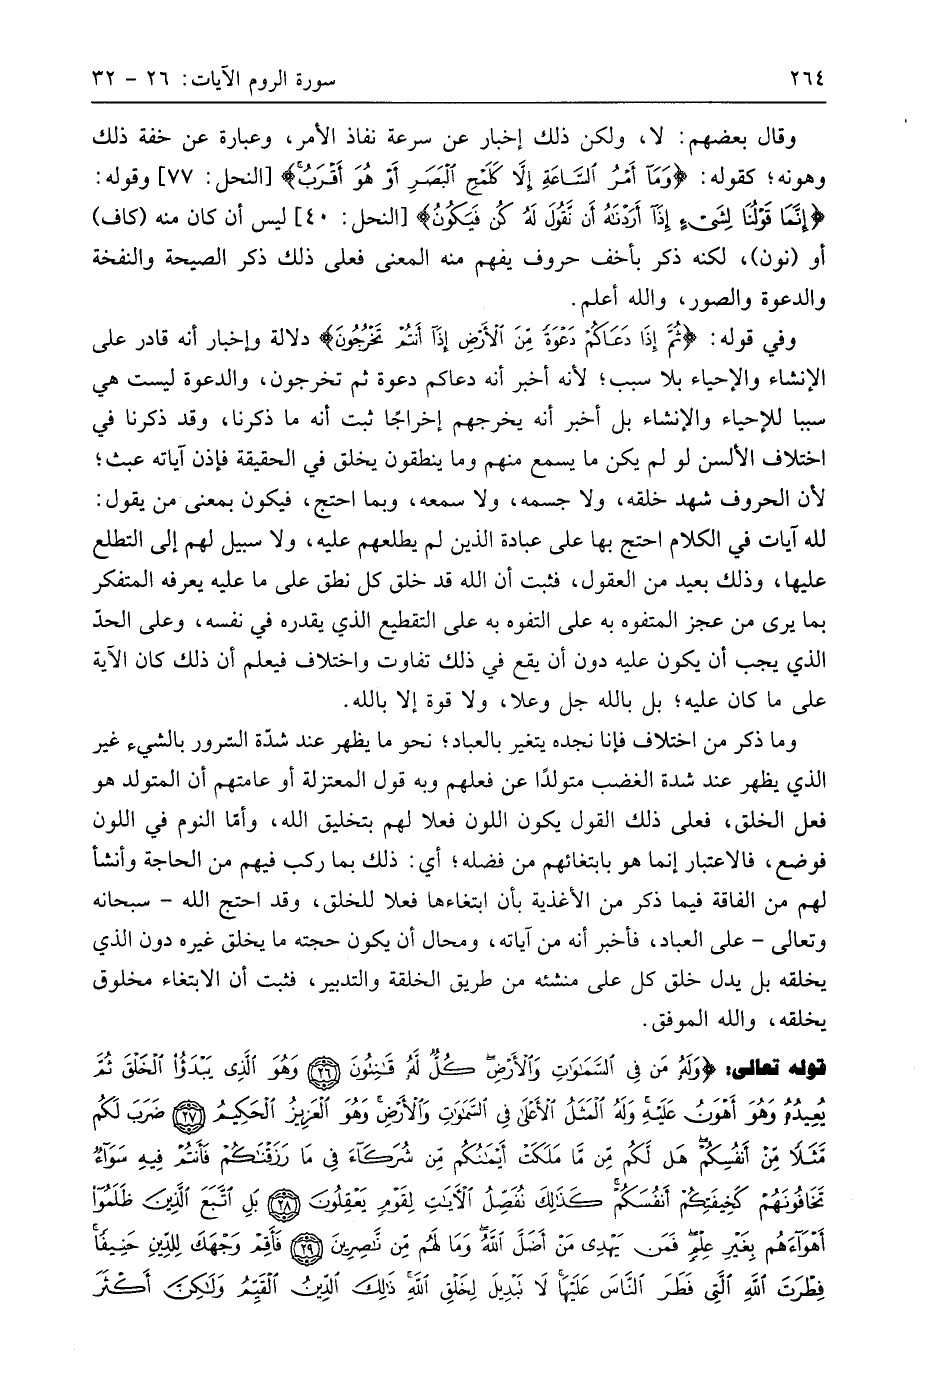 ٢٦٤ سورة الروم الآيات: ٢٦ - ٣٢
وقال بعضهم: لا، ولكن ذلك إخبار عن سرعة نفاذ الأمر، وعبارة عن خفة ذلك
وهونه؛ كقوله: ﴿وَمَآ أَمْرُ ٱلسَّاعَةِ إِلَّا كَلَمْحِ ٱلْبَصَرِ أَوْ هُوَ أَقْرَبُ﴾ [النحل: ٧٧] وقوله:
﴿إِنَّمَا قَوْلُنَا لِشَىْءٍ إِذَآ أَرَدْنَٰهُ أَن نَّقُولَ لَهُۥ كُن فَيَكُونُ﴾ [النحل: ٤٠] ليس أن كان منه (كاف)
أو (نون)، لكنه ذكر بأخف حروف يفهم منه المعنى فعلى ذلك ذكر الصيحة والنفخة
والدعوة والصور، والله أعلم.
وفي قوله: ﴿ثُمَّ إِذَا دَعَاكُمْ دَعْوَةً مِّنَ ٱلْأَرْضِ إِذَآ أَنتُمْ تَخْرُجُونَ﴾ دلالة وإخبار أنه قادر على
الإنشاء والإحياء بلا سبب؛ لأنه أخبر أنه دعاكم دعوة ثم تخرجون، والدعوة ليست هي
سببا للإحياء والإنشاء بل أخبر أنه يخرجهم إخراجًا ثبت أنه ما ذكرنا، وقد ذكرنا في
اختلاف الألسن لو لم يكن ما يسمع منهم وما ينطقون يخلق في الحقيقة فإذن آياته عبث؛
لأن الحروف شهد خلقه، ولا جسمه، ولا سمعه، وبما احتج، فيكون بمعنى من يقول:
لله آيات في الكلام احتج بها على عبادة الذين لم يطلعهم عليه، ولا سبيل لهم إلى التطلع
عليها، وذلك بعيد من العقول، فثبت أن الله قد خلق كل نطق على ما عليه يعرفه المتفكر
بما يرى من عجز المتفوه به على التفوه به على التقطيع الذي يقدره في نفسه، وعلى الحدّ
الذي يجب أن يكون عليه دون أن يقع في ذلك تفاوت واختلاف فيعلم أن ذلك كان الآية
على ما كان عليه؛ بل بالله جل وعلا، ولا قوة إلا بالله.
وما ذكر من اختلاف فإنا نجده يتغير بالعباد؛ نحو ما يظهر عند شدّة السّرور بالشيء غير
الذي يظهر عند شدة الغضب متولدًا عن فعلهم وبه قول المعتزلة أو عامتهم أن المتولد هو
فعل الخلق، فعلى ذلك القول يكون اللون فعلا لهم بتخليق الله، وأمّا النوم في اللون
فوضع، فالاعتبار إنما هو بابتغائهم من فضله؛ أي: ذلك بما ركب فيهم من الحاجة وأنشأ
لهم من الفاقة فيما ذكر من الأغذية بأن ابتغاءها فعلا للخلق، وقد احتج الله - سبحانه
وتعالى - على العباد، فأخبر أنه من آياته، ومحال أن يكون حجته ما يخلق غيره دون الذي
يخلقه بل يدل خلق كل على منشئه من طريق الخلقة والتدبير، فثبت أن الابتغاء مخلوق
يخلقه، والله الموفق.
قوله تعالى: ﴿وَلَهُۥ مَن فِى ٱلسَّمَٰوَٰتِ وَٱلْأَرْضِ ۖ كُلٌّ لَّهُۥ قَٰنِتُونَ ﴿٢٦﴾ وَهُوَ ٱلَّذِى يَبْدَؤُا۟ ٱلْخَلْقَ ثُمَّ
يُعِيدُهُۥ وَهُوَ أَهْوَنُ عَلَيْهِ ۚ وَلَهُ ٱلْمَثَلُ ٱلْأَعْلَىٰ فِى ٱلسَّمَٰوَٰتِ وَٱلْأَرْضِ ۚ وَهُوَ ٱلْعَزِيزُ ٱلْحَكِيمُ ﴿٢٧﴾ ضَرَبَ لَكُم
مَّثَلًا مِّنْ أَنفُسِكُمْ ۖ هَل لَّكُم مِّن مَّا مَلَكَتْ أَيْمَٰنُكُم مِّن شُرَكَآءَ فِى مَا رَزَقْنَٰكُمْ فَأَنتُمْ فِيهِ سَوَآءٌ
تَخَافُونَهُمْ كَخِيفَتِكُمْ أَنفُسَكُمْ ۚ كَذَٰلِكَ نُفَصِّلُ ٱلْءَايَٰتِ لِقَوْمٍ يَعْقِلُونَ ﴿٢٨﴾ بَلِ ٱتَّبَعَ ٱلَّذِينَ ظَلَمُوٓا۟
أَهْوَآءَهُم بِغَيْرِ عِلْمٍ ۖ فَمَن يَهْدِى مَنْ أَضَلَّ ٱللَّهُ ۖ وَمَا لَهُم مِّن نَّٰصِرِينَ ﴿٢٩﴾ فَأَقِمْ وَجْهَكَ لِلدِّينِ حَنِيفًا ۚ
فِطْرَتَ ٱللَّهِ ٱلَّتِى فَطَرَ ٱلنَّاسَ عَلَيْهَا ۚ لَا تَبْدِيلَ لِخَلْقِ ٱللَّهِ ۚ ذَٰلِكَ ٱلدِّينُ ٱلْقَيِّمُ وَلَٰكِنَّ أَكْثَرَ